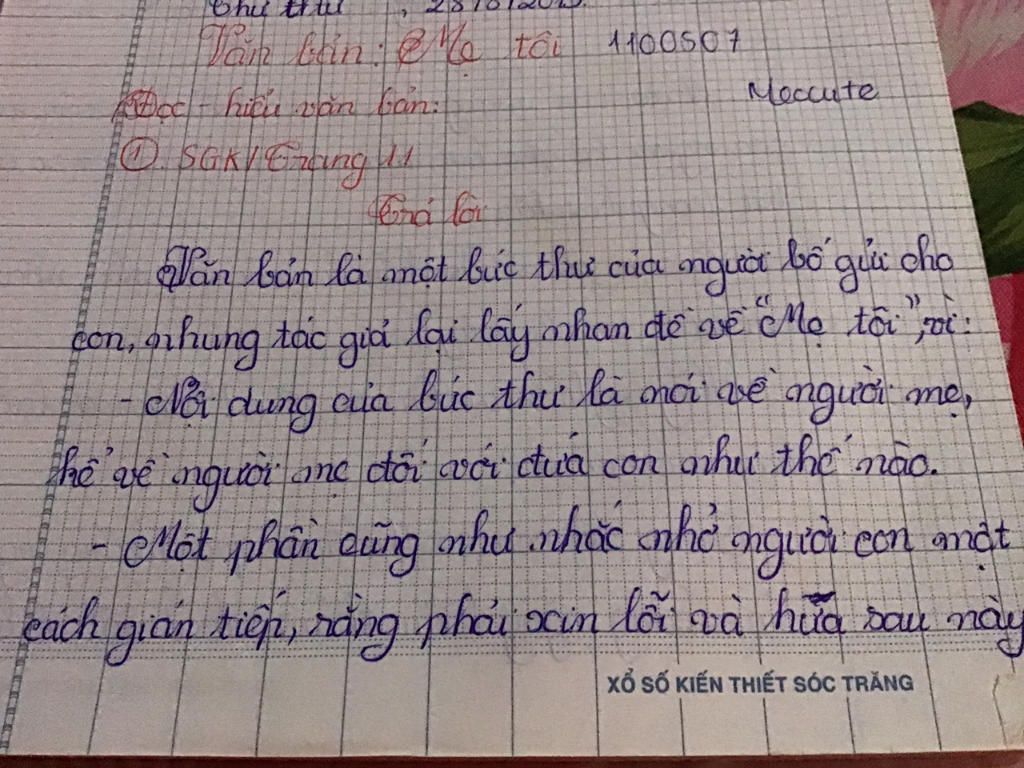 Văn bản: Mẹ tôi 1100507
Moccute
Đọc - hiểu văn bản:
① SGK/Trang 11
Trả lời
Văn bản là một bức thư của người bố gửi cho
con, nhưng tác giả lại lấy nhan đề về "Mẹ tôi", vì:
- Nội dung của bức thư là nói về người mẹ,
kể về người mẹ đối với đứa con như thế nào.
- Một phần cũng như nhắc nhở người con một
cách gián tiếp, rằng phải xin lỗi và hứa sau này
XỔ SỐ KIẾN THIẾT SÓC TRĂNG